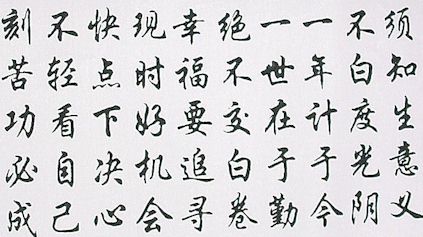 须知生意义
不白度光阴
一年计于今
一世在于勤
绝不交白卷
幸福要追寻
现时好机会
快点下决心
不轻看自己
刻苦功必成